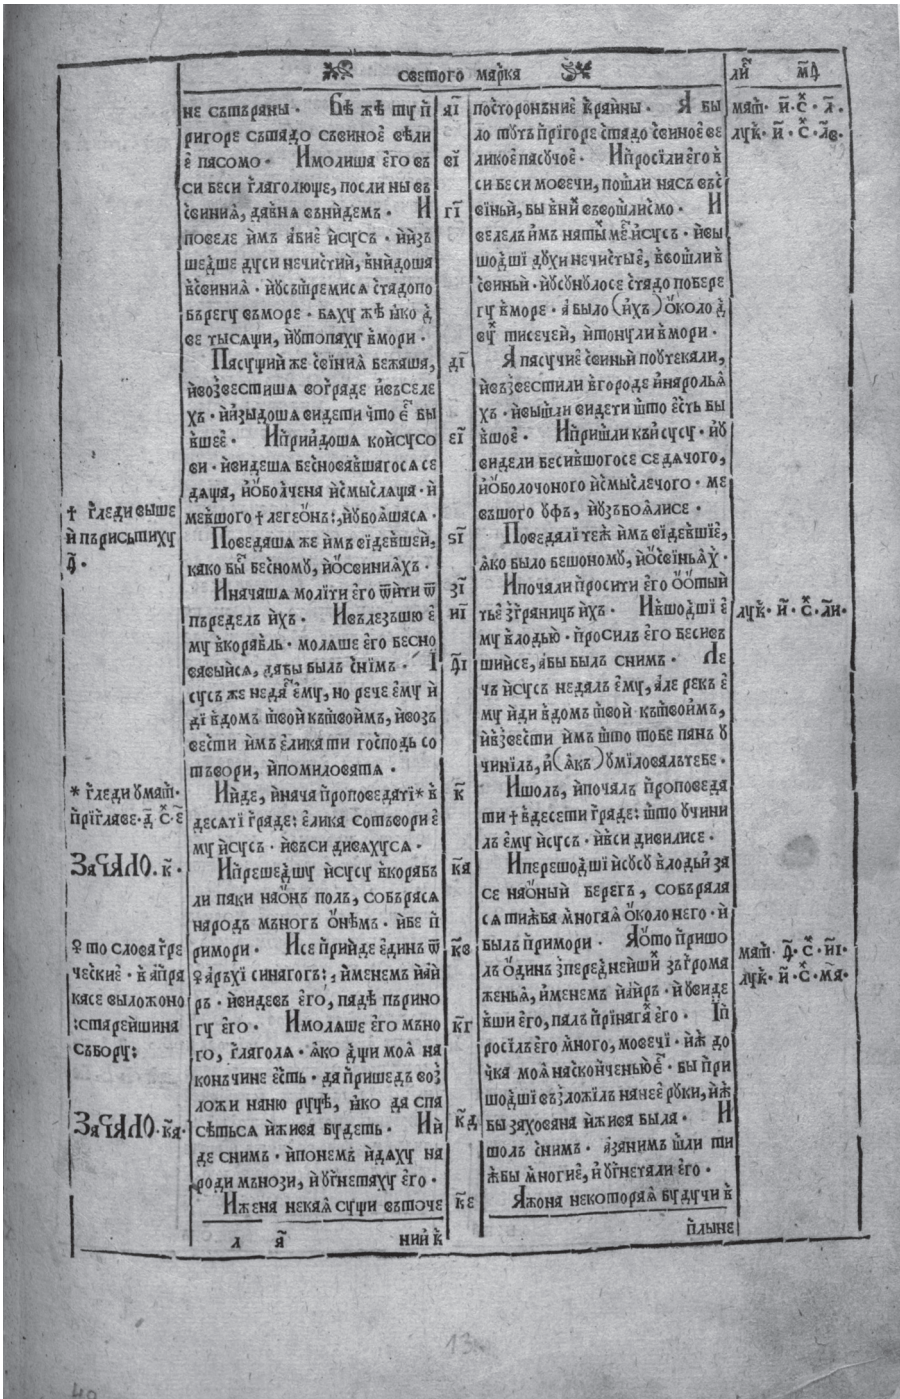 светого марка
ли҃ м҃д
не сътьраны · Бѣ жѣ ту п̾
ригоре сътадо съвиноѐ вѣли
ѐ пасомо · Имолиша ѐго въ
си беси г̾лаголюще, посли ны въ
с̾виниꙗ̀, даꙗ̀ вънидемъ · И
повеле и҆мъ абиѐ и҆сусъ · и҆и҆зъ
шед̾ше дуси нечистиѝ, в̾нидоша
в̾свиниꙗ̀ · и҆усът̾ремисѧ с̾тадопо
бърегу въморе · бѧху жѣ ꙗ҆ко д҃
ве тысѧщи, и҆утопаху в̾мори ·
Пасущиѝ же с̾виниꙗ̀ бежаша,
и҆воз̾вестиша вог̾раде и҆въселе
хъ · и҆и҆зыдоша видети ч̾то е҆с̾ бы
в̾шеѐ · Ип̾риидоша коисусо
ви · и҆видеша бесновав̾шагосѧ се
дѧща, и҆ѻ҆бол̾чена и҆смыслѧща · и҆
мев̾шого † легеѻ҆нъ:, и҆убоѧшасѧ ·
Поведаша же и҆мъ видев̾шеѝ,
како бы҆с̾ бесному, и҆ѻ҆свиниѧхъ ·
Иначаша молити ѐго ѿити ѿ
пъределъ и҆хъ · Ивълезъшю ѐ
му вкорабль · молѧше ѐго бесно
вавыисѧ, дабы былъ с̾нимъ · І
сусъ же недаⷭ҇ ѐму, но рече ѐму и҆
ди в̾домъ т̾вои къ т̾воимъ, и҆возъ
вести и҆мъ ѐлика ти господь со
тъвори, и҆помиловатѧ ·
Ииде, и҆нача п̾роповедати * в̾
десѧти г̾раде: ѐлика сотъвори ѐ
му и҆сусъ · и҆въси дивѧхусѧ ·
Ип̾решед̾шу и҆сусу в̾корабъ
ли паки наѻ҆нъ полъ, собърасѧ
народъ мъногъ ѻ҆нѣмъ · и҆бе п̾
римори · Исе п̾рииде единъ ѿ
♀ аръхи синагогъ:, и҆менемъ и҆аи
ръ · и҆видевъ ѐго, падѣ пърино
гу ѐго · Имолѧше ѐго мъно
го, г̾лаголѧ · ꙗко д̾щи моꙗ на
коньчине ѐсть · да п̾ришедъ воз̾
ложи наню руцѣ, ꙗ҆ко да спа
сѣтьсѧ и҆жива будеть · Ии
де снимъ · и҆понемъ и҆дѧху на
роди мънози, и҆ уг̾нетаху ѐго ·
Иꙗжена некаꙗ сущи въточе
л а҃ нии в̾
а҃і
в҃і
г҃і
д҃і
е҃і
ѕ҃і
з҃і
и҃і
ѳ҃і
к҃
к҃а
к҃в
к҃г
к҃д
к҃е
посторонъниѐ к̾раины · А бы
ло тутъ п̾ригоре стадо с̾виноѐ ве
ликоѐ пасучоѐ · Ип̾росили ѐго в̾
си беси мовечи, пошли насъ въс̾
виньи, бы в̾ниⷯ въвошлисмо · И
велелъ и҆мъ натыⷯмеⷭ҇ и҆сусъ · и҆вы
шод̾ши духи нечистыѐ, в̾вошли в̾
с̾виньи · и҆усунулосе стадо побере
гу в̾море · а было (и҆хъ) ѻ҆коло д҃
вуⷯ тисечеи, и҆тонули в̾мори ·
А пасучиѐ с̾виньи поутекали,
и҆въз̾вестили в̾городе и҆нарольꙗ
хъ · и҆вышли видети што ѐсть бы
в̾шоѐ · Ип̾ришли къи҆сусу · и҆у
видели бесив̾шогосе седачого,
и҆ѻ҆болочоного и҆смыслечого · ме
въшого уфъ, и҆узъбоѧлисе ·
Поведали теж̾ и҆мъ видев̾шиѐ,
ꙗко было бешоному, и҆ѻ҆свиньѧⷯ ·
Ипочали п̾росити ѐго ѻ҆ѿый
тьѐ зг̾раницъ и҆хъ · Ив̾шод̾ши ѐ
му в̾лодью · п̾росилъ ѐго бесивъ
шиисе, абы былъ снимъ · Але
чъ и҆сусъ недалъ ѐму, але рекъ ѐ
му и҆ди в̾домъ т̾вои къ т̾воимъ,
и҆в̾звести и҆мъ што тобе панъ у
чинилъ, и҆(ꙗкъ) умиловалътебе ·
Ишолъ, и҆почалъ п̾роповеда
ти † в̾десети г̾раде: што учини
лъ ѐму и҆сусъ · и҆в̾си дивилисе ·
Иперешод̾ши и҆сусу в̾лодьи за
се наѻ҆ный берегъ, собърала
сѧ тиж̾ба м̾ногаꙗ ѻ҆коло него · и҆
былъ п̾римори · Аѻ҆то п̾ришо
лъ ѻ҆динъ з̾перед̾неишиⷯ зъг̾рома
женьꙗ, и҆менемъ и҆аиръ · и҆ увиде
в̾ши ѐго, палъ п̾ринагаⷯ ѐго · Іп̾
росилъ ѐго м̾ного, мовечи · и҆ж̾ до
ч̾ка моꙗ наскон̾ченью е҆с̾ · бы п̾ри
шод̾ши възложилъ нанеѐ руки, и҆ж̾
бы захована и҆жива была · И
шолъ снимъ · азанимъ шли ти
ж̾бы м̾ногиѐ, и҆ уг̾нетали ѐго ·
Ажона некотораꙗ будучи в̾
п̾лыне
† г̾леди выше
и҆ пърисьтиху
ѳ҃ ·
* г̾леди у мат̾ ·
п̾риглаве · д҃ с҃ · е҃
Зачало · к҃ ·
♀ то слова г̾ре
ческиѐ · в̾ап̾ра
касе выложоно
:старѣишина
събору:
Зачало · к҃а ·
мат̾ · и҃ · с҃ · л҃ ·
лук̾ · и҃ · с҃ · л҃в ·
лук̾ · и҃ · с҃ · л҃и ·
мат̾ · ѳ҃ · с҃ · и҃і ·
лук̾ · и҃ · с҃ · м҃а ·
13